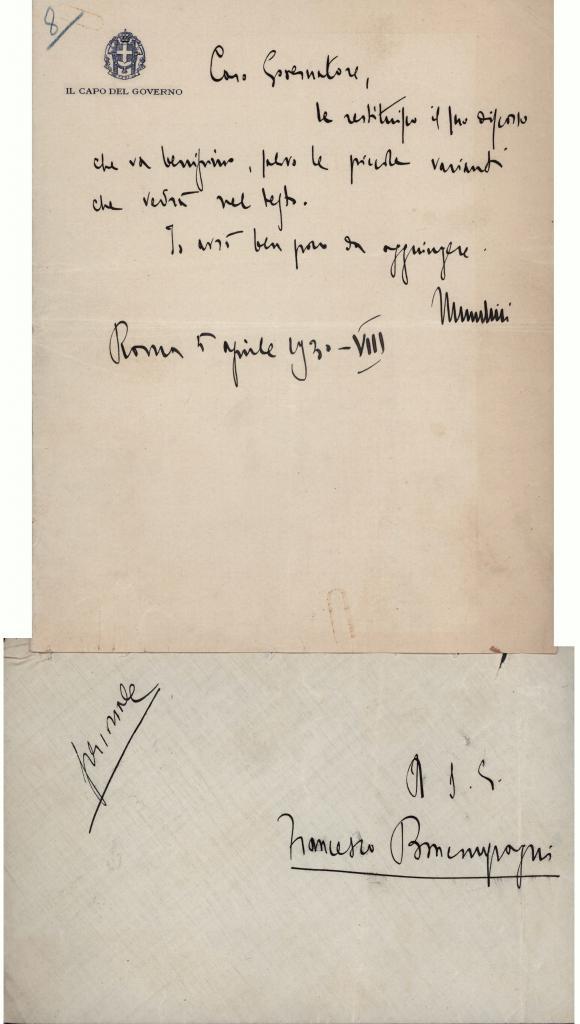 8
IL CAPO DEL GOVERNO
Caro Governatore,
le restituisco il suo discorso
che va benissimo, salvo le piccole varianti
che vedrà nel testo.
Io avrò ben poco da aggiungere.
Mussolini
Roma 5 aprile 1930 - VIII
personale
A S. E.
Francesco Boncompagni